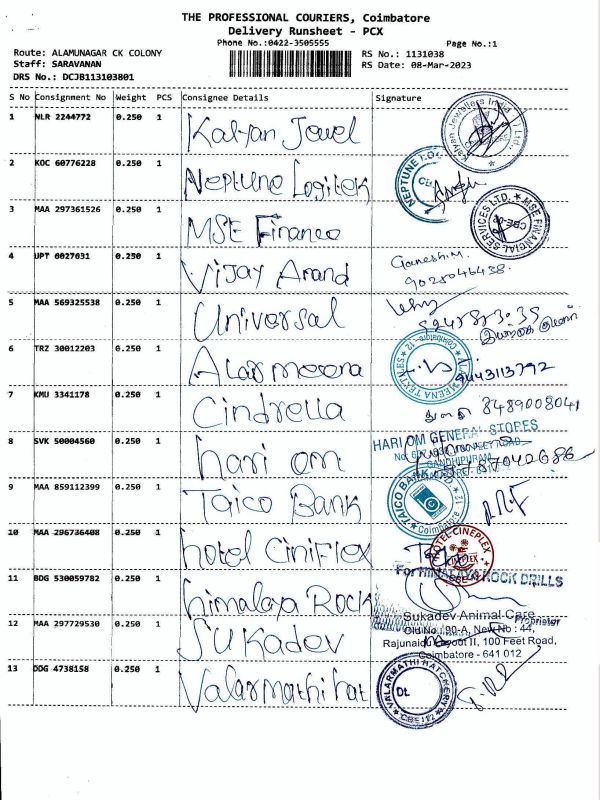 THE PROFESSIONAL COURIERS, Coimbatore
Delivery Runsheet - PCX
Phone No.:0422-3505555
Page No.:1
Route: ALAMUNAGAR CK COLONY
RS No.: 1131038
Staff: SARAVANAN
RS Date: 08-Mar-2023
DRS No.: DCJB113103801
S No Consignment No Weight PCS Consignee Details Signature
1 NLR 2244772 0.250 1 Kalyan Jewel
2 KOC 60776228 0.250 1 Neptune Logitek
3 MAA 297361526 0.250 1 MSE Finance
MSE FINANCIAL SERVICES LTD.
4 UPT 6027031 0.250 1 Vijay Anand Ganesh.M.
9025046438.
5 MAA 569325538 0.250 1 Universal
6 TRZ 30012203 0.250 1 Alarmeena
9443113792
7 KMU 3341178 0.250 1 Cindrella 8489008041
8 SVK 50004560 0.250 1 hari om
HARI OM GENERAL STORES
GANDHIPURAM
9 MAA 859112399 0.250 1 Taico Bank
TAICO BANK
Coimbatore - 12
10 MAA 296736408 0.250 1 hotel Ciniflex
HOTEL CINEPLEX
11 BDG 530059782 0.250 1 himalaya Rock
For HIMALAYA ROCK DRILLS
Proprietor
12 MAA 297729530 0.250 1 Sukadev
Sukadev Animal Care
Old No : 90-A, New No : 44,
Rajunaidu Layout II, 100 Feet Road,
Coimbatore - 641 012
13 DDG 4738158 0.250 1 Valarmathi hat
VALARMATHI HATCHERY
Dt.
CBE-12